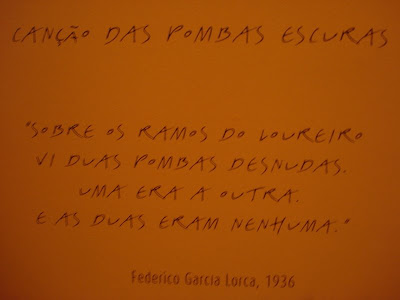 CANÇÃO DAS POMBAS ESCURAS
"SOBRE OS RAMOS DO LOUREIRO
VI DUAS POMBAS DESNUDAS.
UMA ERA A OUTRA.
E AS DUAS ERAM NENHUMA."
Federico Garcia Lorca, 1936